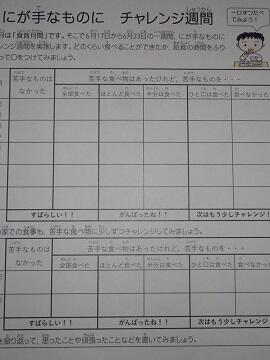 にが手なものに チャレンジ週間
一口ずつたべてみよう！
月は「食育月間」です。そこで6月17日から6月23日の一週間、にが手なものに
レンジ週間を実施します。どのくらい食べることができたか、給食の時間をふり
って〇をつけてみましょう。
苦手なものはなかった
苦手な食べ物はあったけれど、苦手なものを・・・
全部食べた ほとんど食べた 半分は食べた ひと口は食べた 食べなかった
すばらしい！！ がんばったね！！ 次はもう少しチャレンジ！
家での食事も、苦手な食べ物に少しずつチャレンジしてみましょう。
苦手なものはなかった
苦手な食べ物はあったけれど、苦手なものを・・・
全部食べた ほとんど食べた 半分は食べた ひと口は食べた 食べな
すばらしい！！ がんばったね！！ 次はもう少しチャレンジ
を振り返って、思ったことや頑張ったことなどを書いてみましょう。